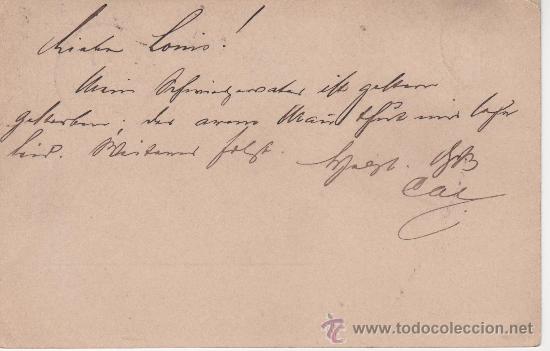 Lieber Louis!
Mein Schwiegervater ist gestern
gestorben; der arme Mann thut mir sehr
leid. Weiteres folgt.
Carl
TC www.todocoleccion.net